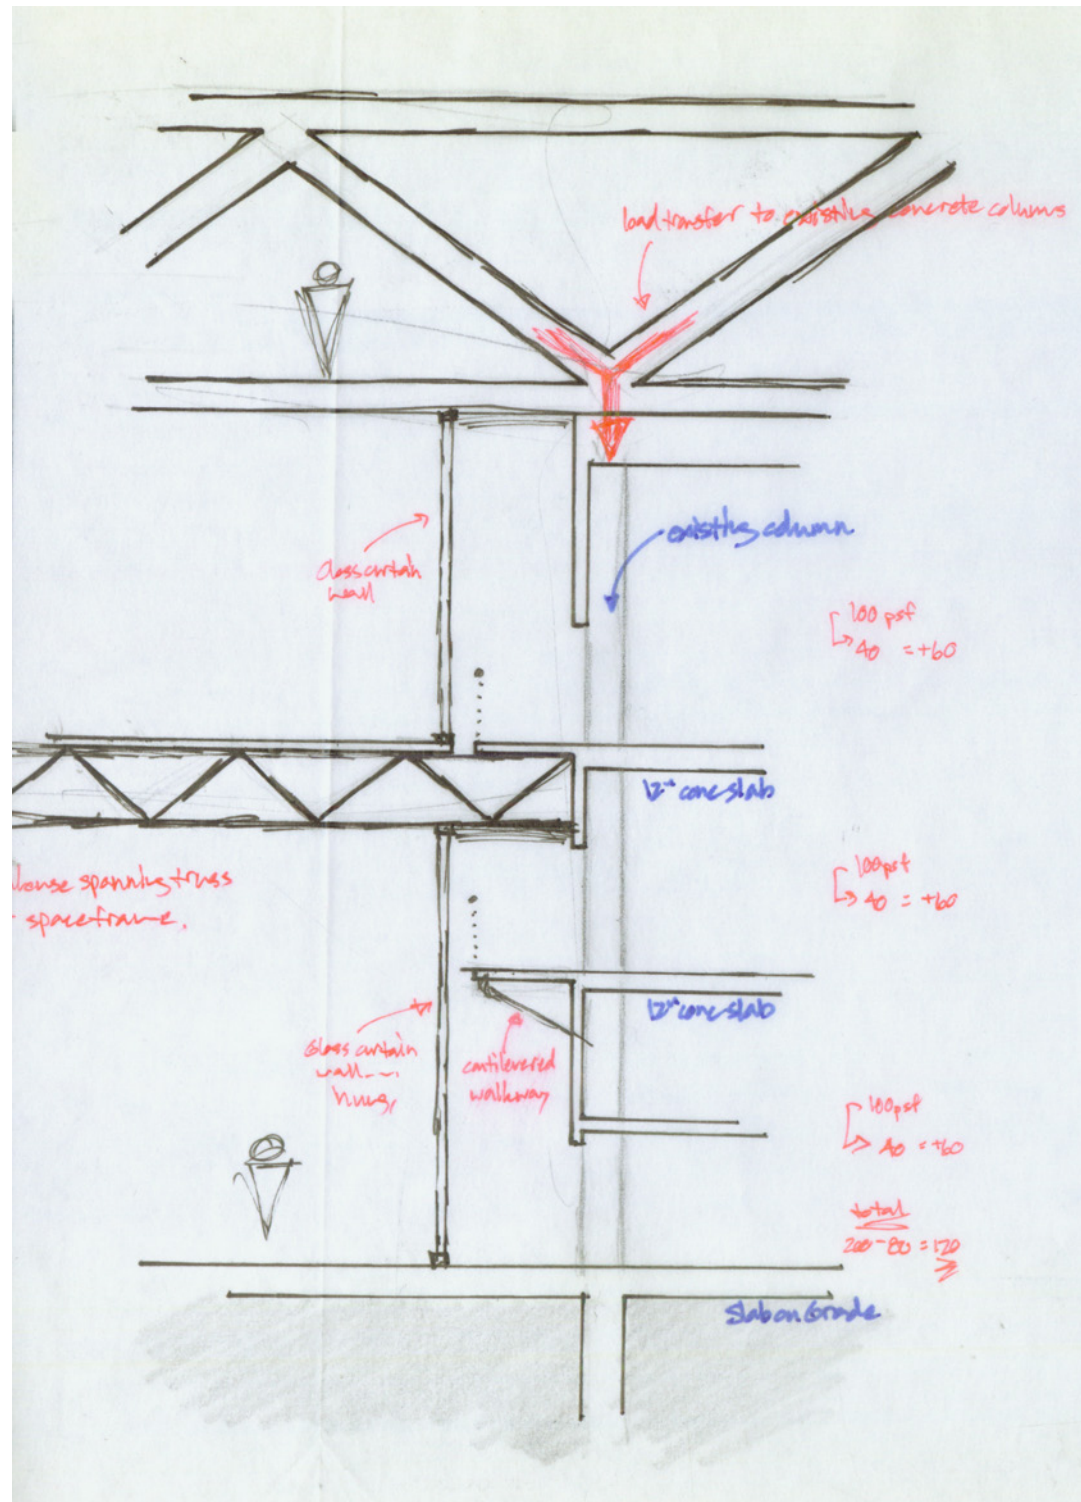 load transfer to existing concrete columns
existing column
Glass curtain
wall
100 psf
40 = +60
12" conc slab
spanning truss
spaceframe.
100psf
40 = +60
12" conc slab
Glass curtain
wall
hung,
cantilevered
walkway
100psf
40 = +60
total
200-80 = 120
Slab on Grade